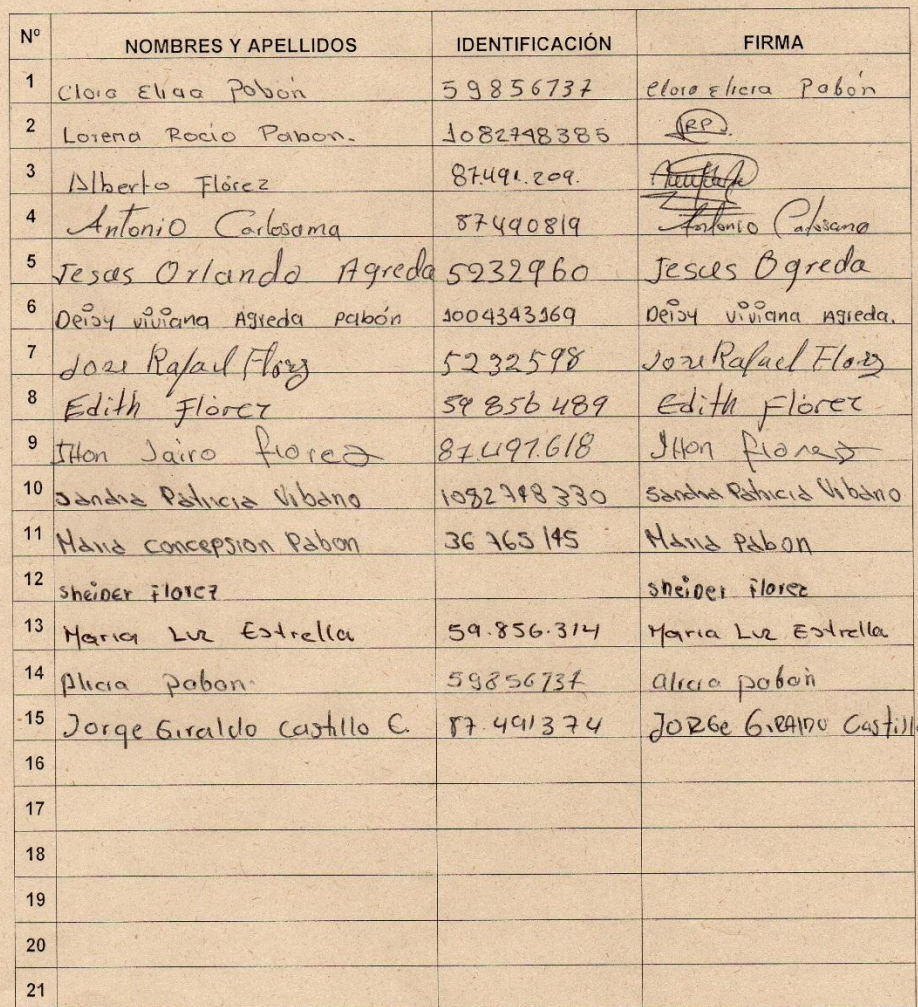 Nº NOMBRES Y APELLIDOS IDENTIFICACIÓN FIRMA
1 Clara Elisa Pabón 59856737 Clara Elicia Pabón
2 Lorena Rocio Pabon. 1082748385 RP
3 Alberto Flórez 87.491.209.
4 Antonio Carlosama 87490819 Antonio Carlosama
5 Jesus Orlando Agreda 5232960 Jesus Agreda
6 Deisy viviana Agreda pabón 1004343169 Deisy viviana Agreda.
7 Jose Rafael Florez 5232598 Jose Rafael Florez
8 Edith Flórez 59 856 489 Edith Flórez
9 JHon Jairo florez 87.497.618 JHon florez
10 Sandra Patricia Urbano 1082748330 Sandra Patricia Urbano
11 Maria concepsion Pabon 36 765 145 Maria Pabon
12 sneider Florez sneider Florez
13 Maria Luz Estrella 59.856.314 Maria Luz Estrella
14 Alicia pabon. 59856737 alicia pabon
15 Jorge Giraldo Castillo C. 87.491374 JORGe GiRAlDO Castill
16
17
18
19
20
21